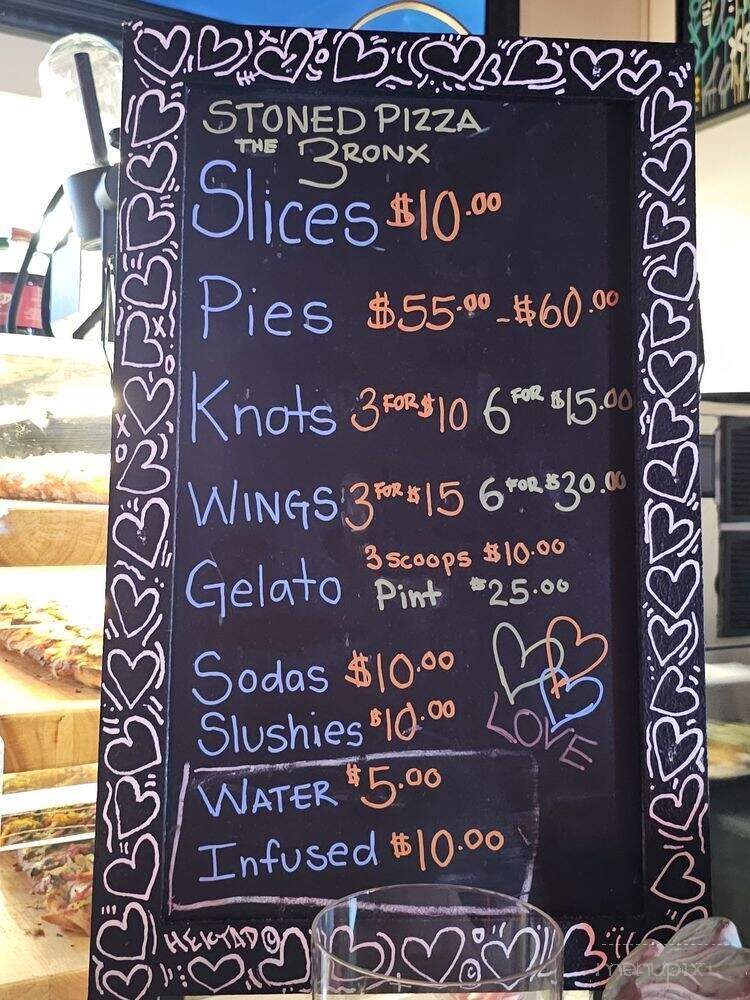 STONED PIZZA
THE BRONX
Slices $10.00
Pies $55.00 - $60.00
Knots 3 FOR $10 6 FOR $15.00
WINGS 3 FOR $15 6 FOR $30.00
3 scoops $10.00
Gelato Pint $25.00
Sodas $10.00
Slushies $10.00
LOVE
WATER $5.00
Infused $10.00
HEKTAD ©
menupix